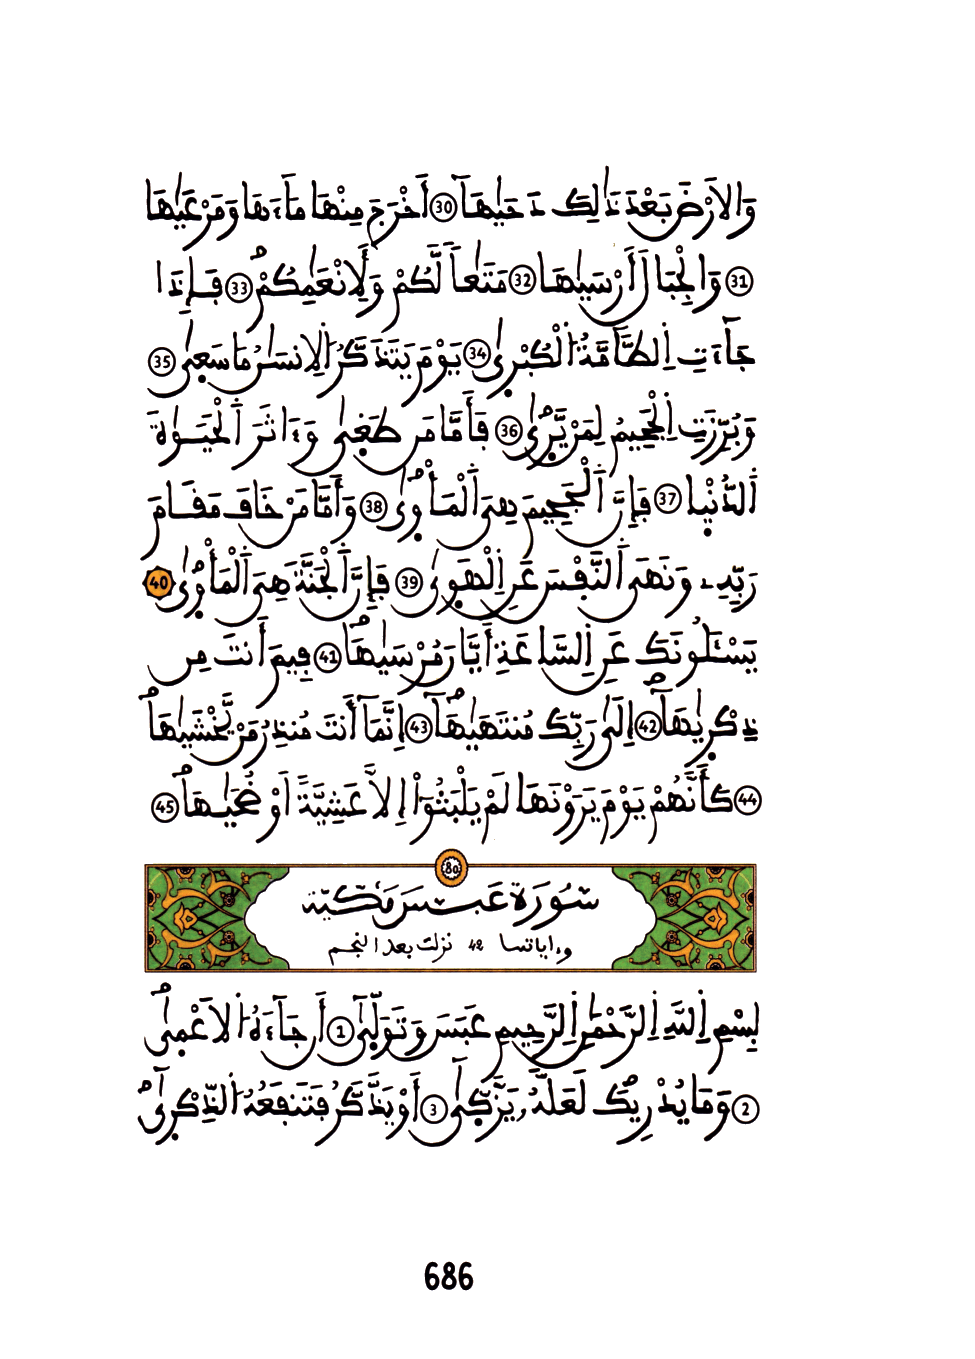 وَالَارْضَ بَعْدَ ذَٰلِكَ دَحَيٰهَآ 30 أَخْرَجَ مِنْهَا مَآءَهَا وَمَرْعَيٰهَا
31 وَالْجِبَالَ أَرْسَيٰهَا 32 مَتَٰعاٗ لَّكُمْ وَلِأَنْعَٰمِكُمْ 33 فَإِذَا
جَآءَتِ اِ۬لطَّآمَّةُ اُ۬لْكُبْر۪يٰ 34 يَوْمَ يَتَذَكَّرُ اُ۬لِانسَٰنُ مَا سَع۪يٰ 35
وَبُرِّزَتِ اِ۬لْجَحِيمُ لِمَنْ يَّر۪يٰ 36 فَأَمَّا مَن طَغ۪يٰ وَءَاثَرَ اَ۬لْحَيَوٰةَ
اَ۬لدُّنْي۪ا 37 فَإِنَّ اَ۬لْجَحِيمَ هِيَ اَ۬لْمَأْو۪يٰ 38 وَأَمَّا مَنْ خَافَ مَقَامَ
رَبِّهِۦ وَنَهَى اَ۬لنَّفْسَ عَنِ اِ۬لْهَو۪يٰ 39 فَإِنَّ اَ۬لْجَنَّةَ هِيَ اَ۬لْمَأْو۪يٰ 40
يَسْـَٔلُونَكَ عَنِ اِ۬لسَّاعَةِ أَيَّانَ مُرْسَيٰهَا 41 فِيمَ أَنتَ مِن
ذِكْر۪يٰهَآ 42 إِلَىٰ رَبِّكَ مُنتَهَيٰهَآ 43 إِنَّمَآ أَنتَ مُنذِرُ مَنْ يَّخْشَيٰهَا
44 كَأَنَّهُمْ يَوْمَ يَرَوْنَهَا لَمْ يَلْبَثُوٓاْ إِلَّا عَشِيَّةً اَوْ ضُحَيٰهَا 45
80
سُورَة عَبَسَ مَكّيّة
وءاياتها 42 نزلت بعد النجم
بِسْمِ اِ۬للَّهِ اِ۬لرَّحْمَٰنِ اِ۬لرَّحِيمِ عَبَسَ وَتَوَلّ۪يٰٓ 1 أَن جَآءَهُ اُ۬لَاعْم۪يٰ
2 وَمَا يُدْرِيكَ لَعَلَّهُۥ يَزَّكّ۪يٰٓ 3 أَوْ يَذَّكَّرُ فَتَنفَعُهُ اُ۬لذِّكْر۪يٰٓ
686